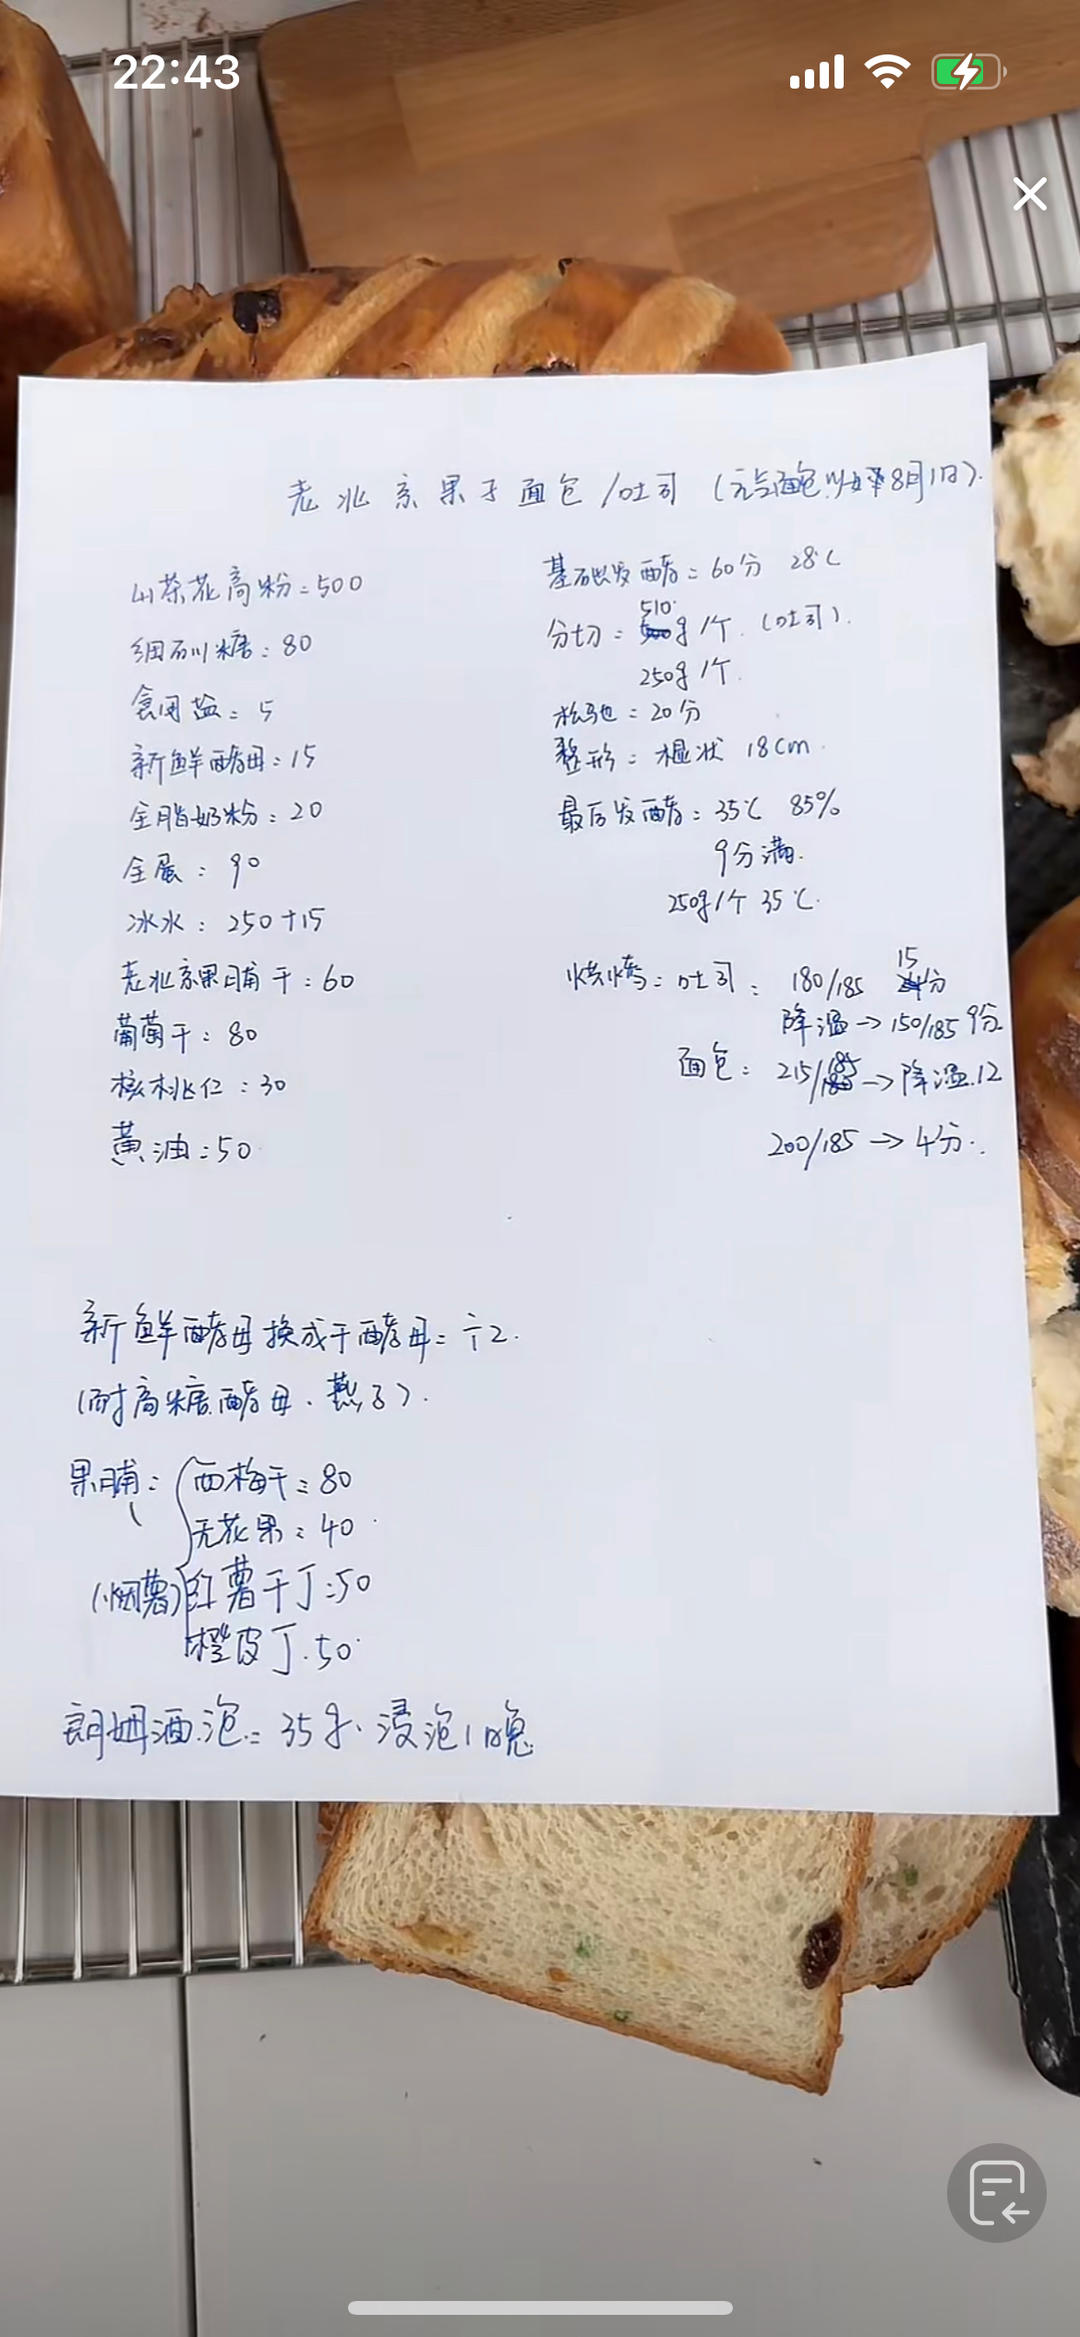 22:43
老北京果子面包/吐司 (元气面包 8月1日).
山茶花高粉=500
细砂糖: 80
食用盐= 5
新鲜酵母:15
全脂奶粉: 20
全蛋: 90
冰水: 250+15
老北京果脯干:60
葡萄干: 80
核桃仁:30
黄油:50
基础发酵=60分 28℃
分切= 510g/个. (吐司).
250g/个.
松弛=20分
整形: 棍状 18cm
最后发酵: 35℃ 85%
9分满.
250g/个 35℃.
烘烤: 吐司: 180/185 15分
降温→150/185 9分
面包: 215/185→降温.12
200/185→4分.
新鲜酵母换成干酵母=÷2.
(耐高糖酵母.燕子).
果脯: 西梅干:80
无花果:40
(烟薯)红薯干丁:50
橙皮丁.50
朗姆酒.泡= 35g、浸泡1晚